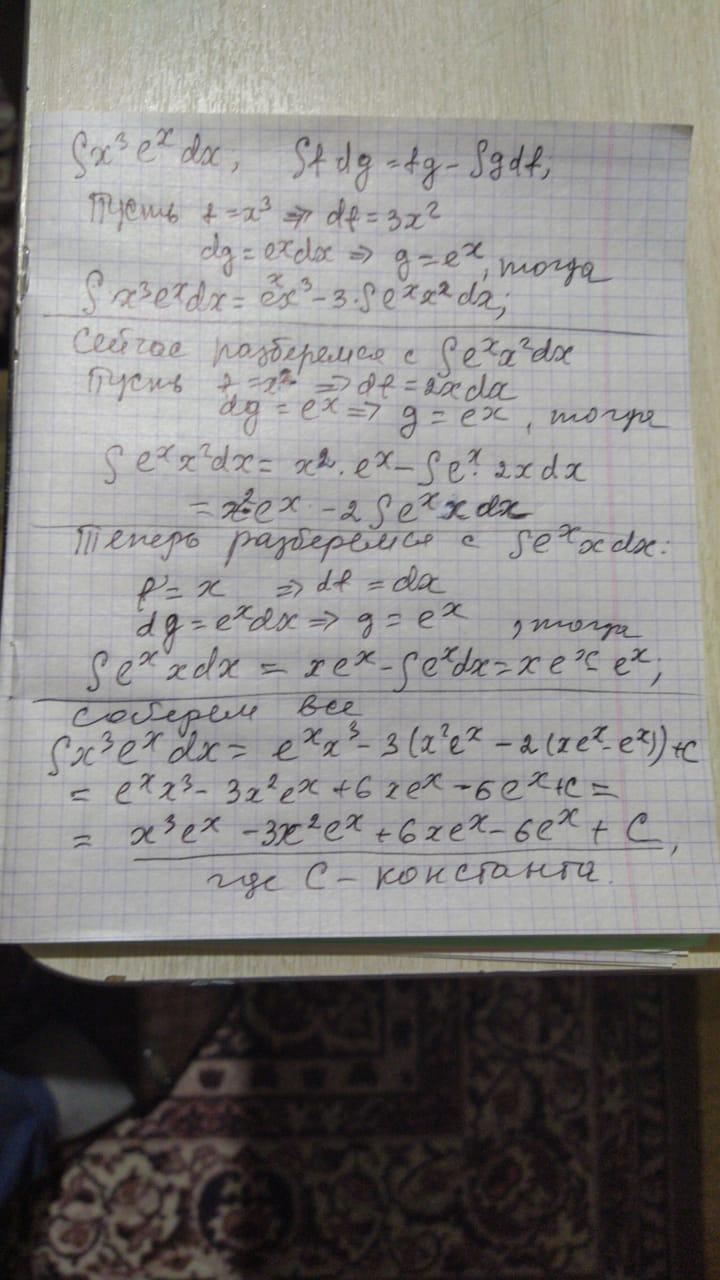 ∫x³eˣdx; ∫f dg = fg - ∫g df;
Пусть f = x³ ⇒ df = 3x²
dg = eˣdx ⇒ g = eˣ, тогда
∫x³eˣdx = eˣx³ - 3·∫eˣx²dx;
Сейчас разберемся с ∫eˣx²dx
Пусть f = x² ⇒ df = 2xdx
dg = eˣ ⇒ g = eˣ, тогда
∫eˣx²dx = x²·eˣ - ∫eˣ·2xdx
= x²eˣ - 2∫eˣxdx
Теперь разберемся с ∫eˣxdx:
f = x ⇒ df = dx
dg = eˣdx ⇒ g = eˣ, тогда
∫eˣxdx = xeˣ - ∫eˣdx = xeˣ - eˣ;
Соберем все
∫x³eˣdx = eˣx³ - 3(x²eˣ - 2(xeˣ - eˣ)) + C
= eˣx³ - 3x²eˣ + 6xeˣ - 6eˣ + C =
= x³eˣ - 3x²eˣ + 6xeˣ - 6eˣ + C,
где C - константа.